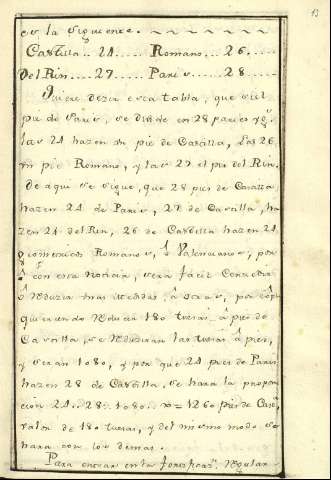 13
es la siguiente.
Castilla 24 Romano 26
Del Rin 27 Paris 28
Quiere dezir esta tabla, que si el
pie de Paris, se divide en 28 partes
las 24 hazen un pie de Castilla, Las 26
un pie Romano, y las 27 el pie del Rin.
de aqui se sigue, que 28 pies de Castilla
hazen 24 de Paris, 27 de Castilla, ha
zen 24 del Rin, 26 de Castilla hazen 24
Romanos, ô Valencianos, por
q̃ con esta noticia, sera facil
ô reduzir mas medidas â otras, por
quiriendo reducir 180 tuesas â pies de
Castilla, se reduziran las tuesas â pies,
y seran 1080, y por que 24 pies de Paris
hazen 28 de Castilla. se hara la propor
cion 24.. 28: 1080.. = 1260 pies de
valor de 180 tuesas, y del mismo modo se
hara con los demas.
Para entrar en la regular